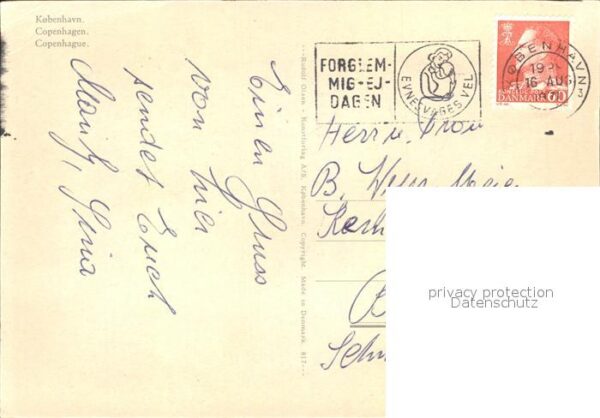 København.
Copenhagen.
Copenhague.
Einen Gruss
von hier
sendet Euch
---Rudolf Olsen - Kunstforlag A/S, København. Copyright. Made in Denmark. 817---
FORGLEM-
MIG-EJ-
DAGEN
EVNESVAGES VEL
KØBENHAVN
16 AUG
DANMARK 60
Herrn Frau
B.
privacy protection
Datenschutz